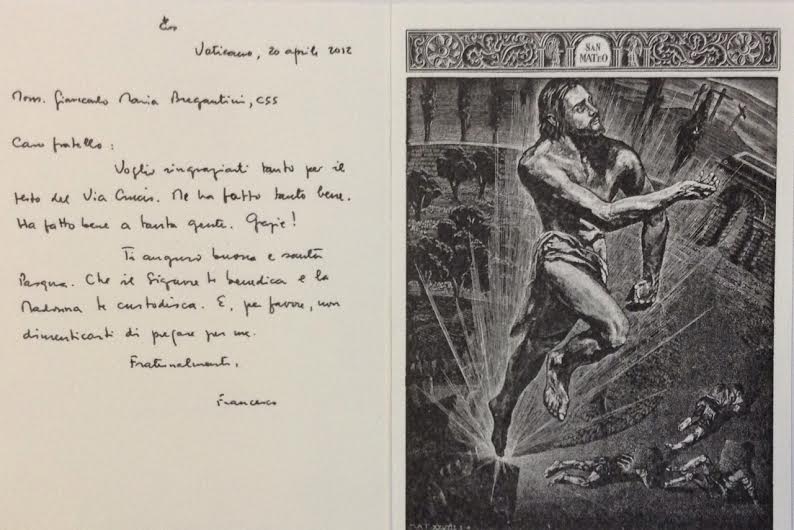 Vaticano, 20 aprile 2012
Mons. Giancarlo Maria Bregantini, CSS
Caro fratello:
Voglio ringraziarti tanto per il
testo del Via Crucis. Me ha fatto tanto bene.
Ha fatto bene a tanta gente. Grazie!
Ti auguro buona e santa
Pasqua. Che il Signore te benedica e la
Madonna te custodisca. E, per favore, non
dimenticarti di pregare per me.
Fraternalmente,
Francesco
SAN
MATEO